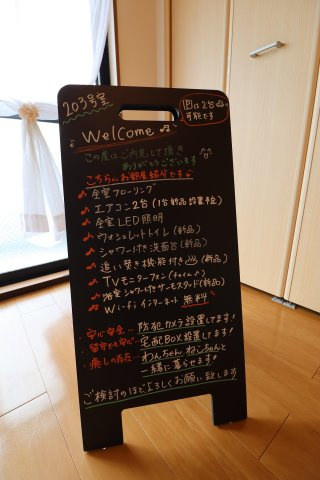 203号室
Welcome
は2台
可能です
この度はご内見して頂き
ありがとうございます
こちらのお部屋紹介です
全室フローリング
エアコン2台(1台新品設置予定)
全室LED照明
ウォシュレットトイレ(新品)
シャワー付き洗面台(新品)
追い焚き機能付き(新品)
TVモニターフォン(チャイム)
浴室シャワー付きサーモスタンド(新品)
Wi-fiインターネット 無料
安心安全…防犯カメラ設置してます!
留守でも安心…宅配BOX設置してます!
癒しの存在…わんちゃんねこちゃんと
一緒に暮らせます!
ご検討のほどよろしくお願い致します